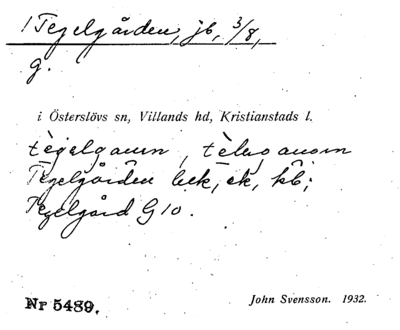 1 Tegelgården, jb, 3/8,
g.
i Österslövs sn, Villands hd, Kristianstads l.
Tegelgården leck, ek, kb;
Tegelgård G10.
Nr 5489.
John Svensson. 1932.